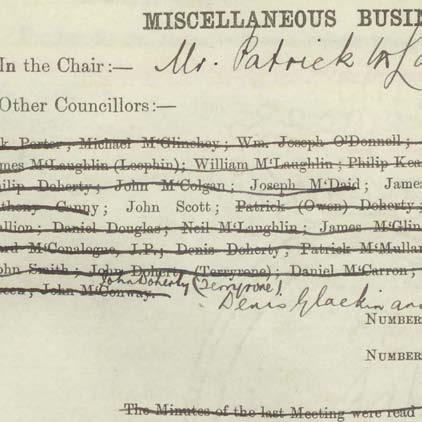 MISCELLANEOUS BUSIN
In the Chair:— Mr. Patrick
Other Councillors:—
k Porter; Michael M'Glinchey; Wm. Joseph O'Donnell;
mes M'Laughlin (Leophin); William M'Laughlin; Philip Kea
hilip Doherty; John M'Colgan; Joseph M'Daid; James
thony Canny; John Scott; Patrick (Owen) Doherty;
allion; Daniel Douglas; Neil M'Laughlin; James M'Glin
ard M'Conalogue, J.P.; Denis Doherty; Patrick M'Mullan
ohn Smith; John Doherty (Terryrone); Daniel M'Carron;
John Doherty (Terryrone)
een; John M'Conway.
Denis Glackin and
NUMBER
NUMBER
The Minutes of the last Meeting were read